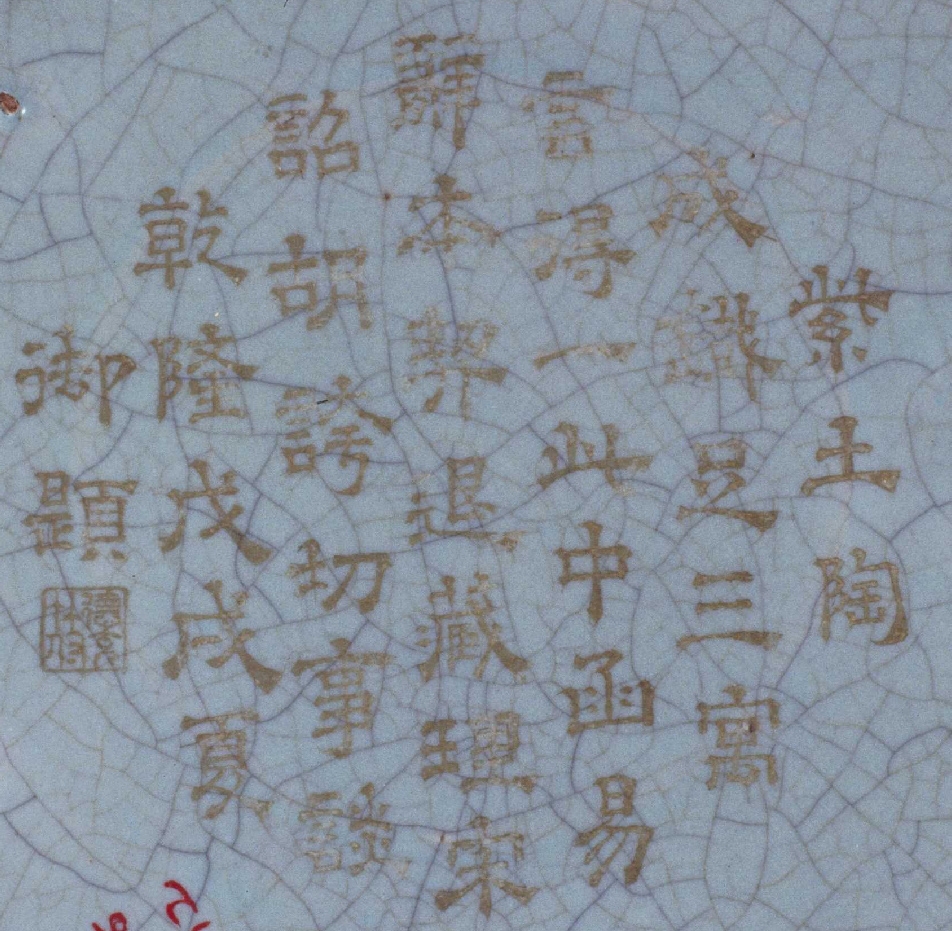 紫土陶
成鐵足三寓
言得一此中函易
辭本契退藏理宋
詔胡誇切事談
乾隆戊戌夏
御題